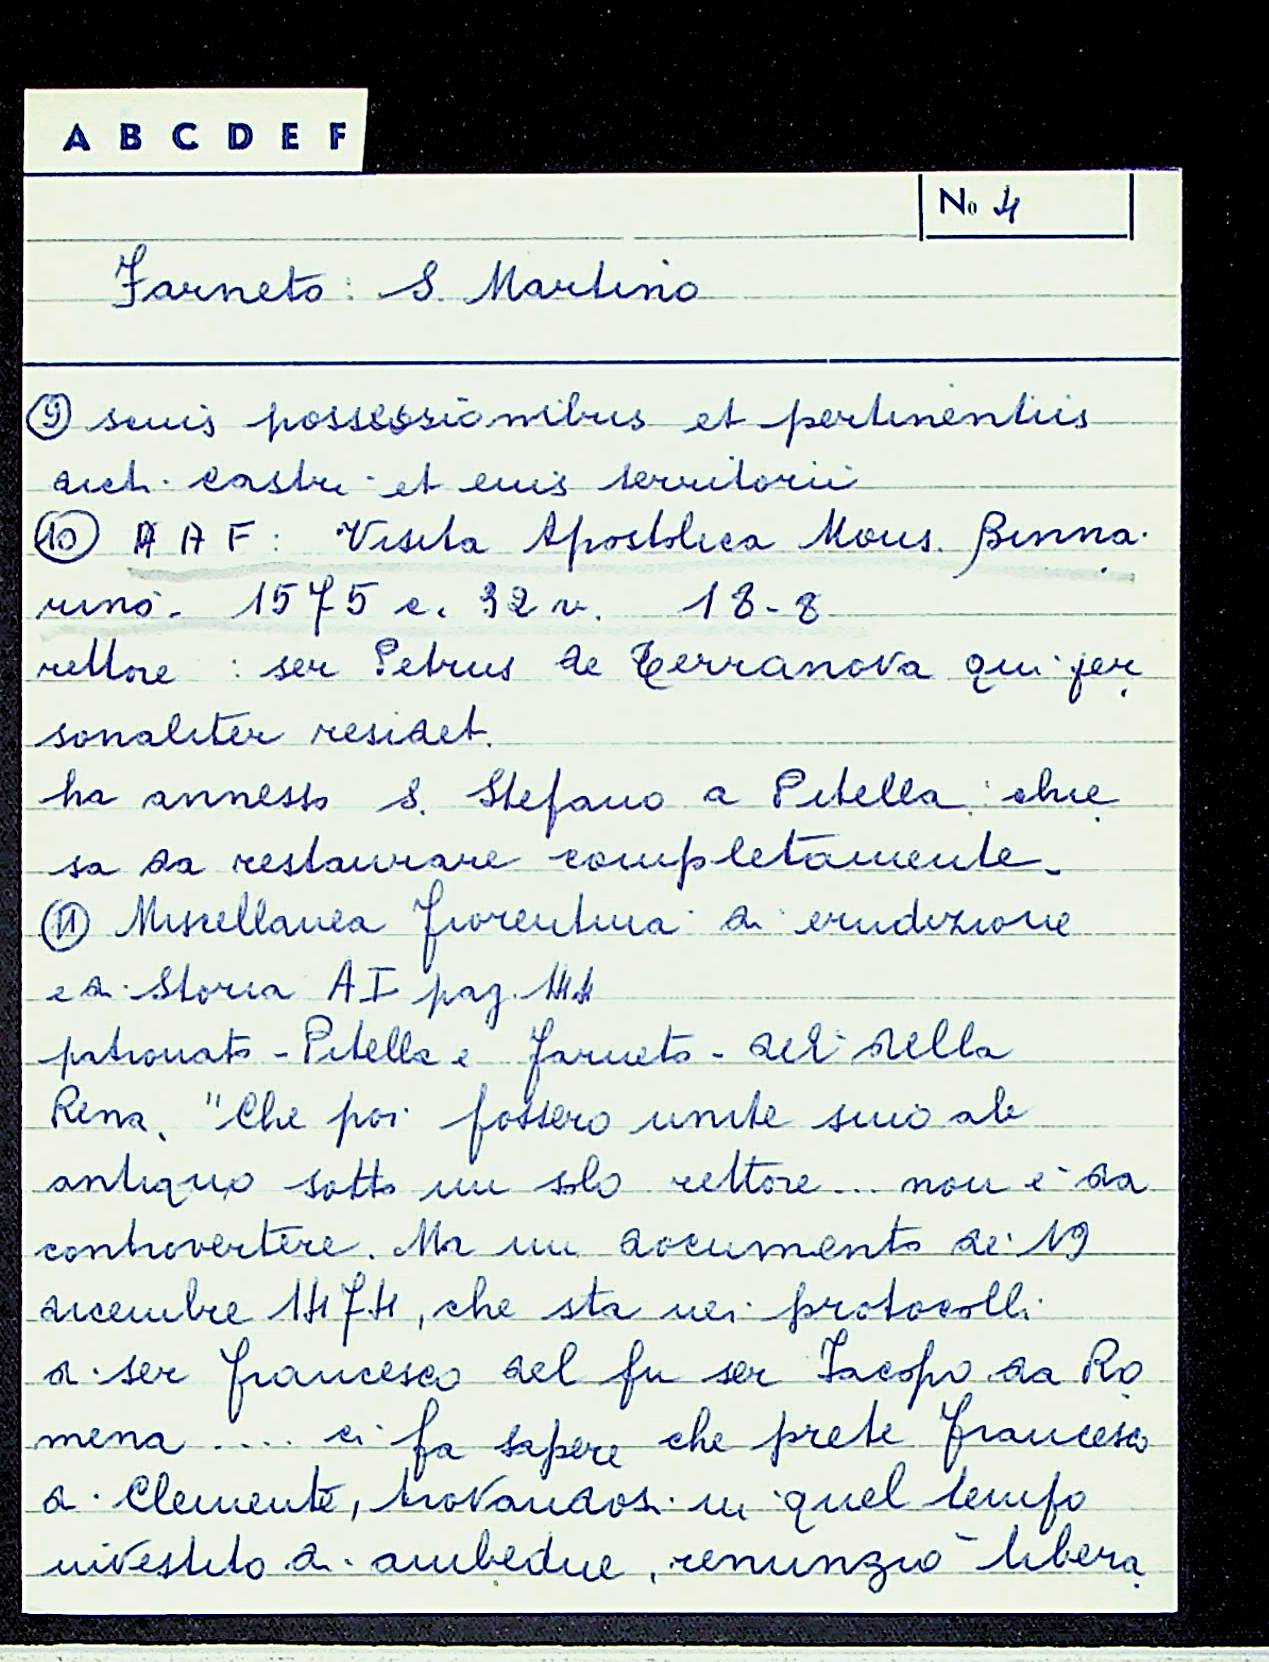 A B C D E F
No 4
Farneto: S. Martino
⑨ suis possessionibus et pertinentiis
dicti castri et eius territorii
⑩ A A F: Visita Apostolica Mons. Binna.
rino. 1575 c. 32 v. 18-8
rettore : ser Petrus de Terranova qui per
sonaliter residet.
ha annesso S. Stefano a Pitella: chie
sa da restaurare completamente.
⑪ Miscellanea fiorentina di erudizione
e di Storia A I pag. 144
patronato - Pitella e Farneto - dei della
Rena. "Che poi fossero unite sino ab
antiquo sotto un solo rettore... non è da
controvertere. Ma un documento de' 19
dicembre 1474, che sta nei protocolli
di ser Francesco del fu ser Iacopo da Ro
mena .... ci fa sapere che prete Francesco
di Clemente, trovandosi in quel tempo
investito di ambedue, renunziò libera